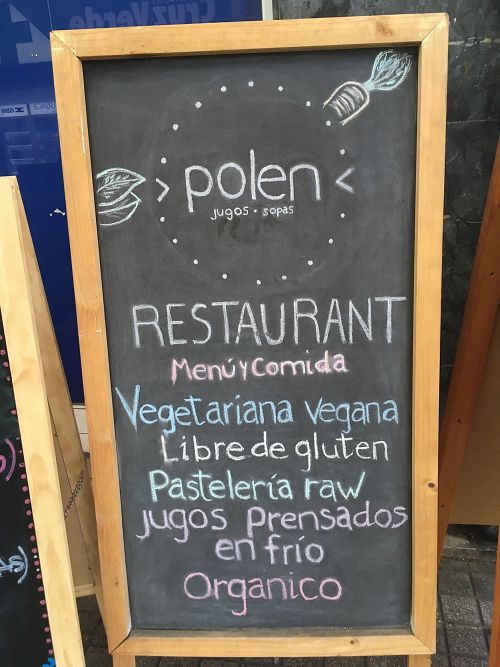 Cruz Verde
> polen <
jugos · sopas
RESTAURANT
Menú y Comida
Vegetariana Vegana
Libre de gluten
Pastelería raw
jugos Prensados
en frío
Organico